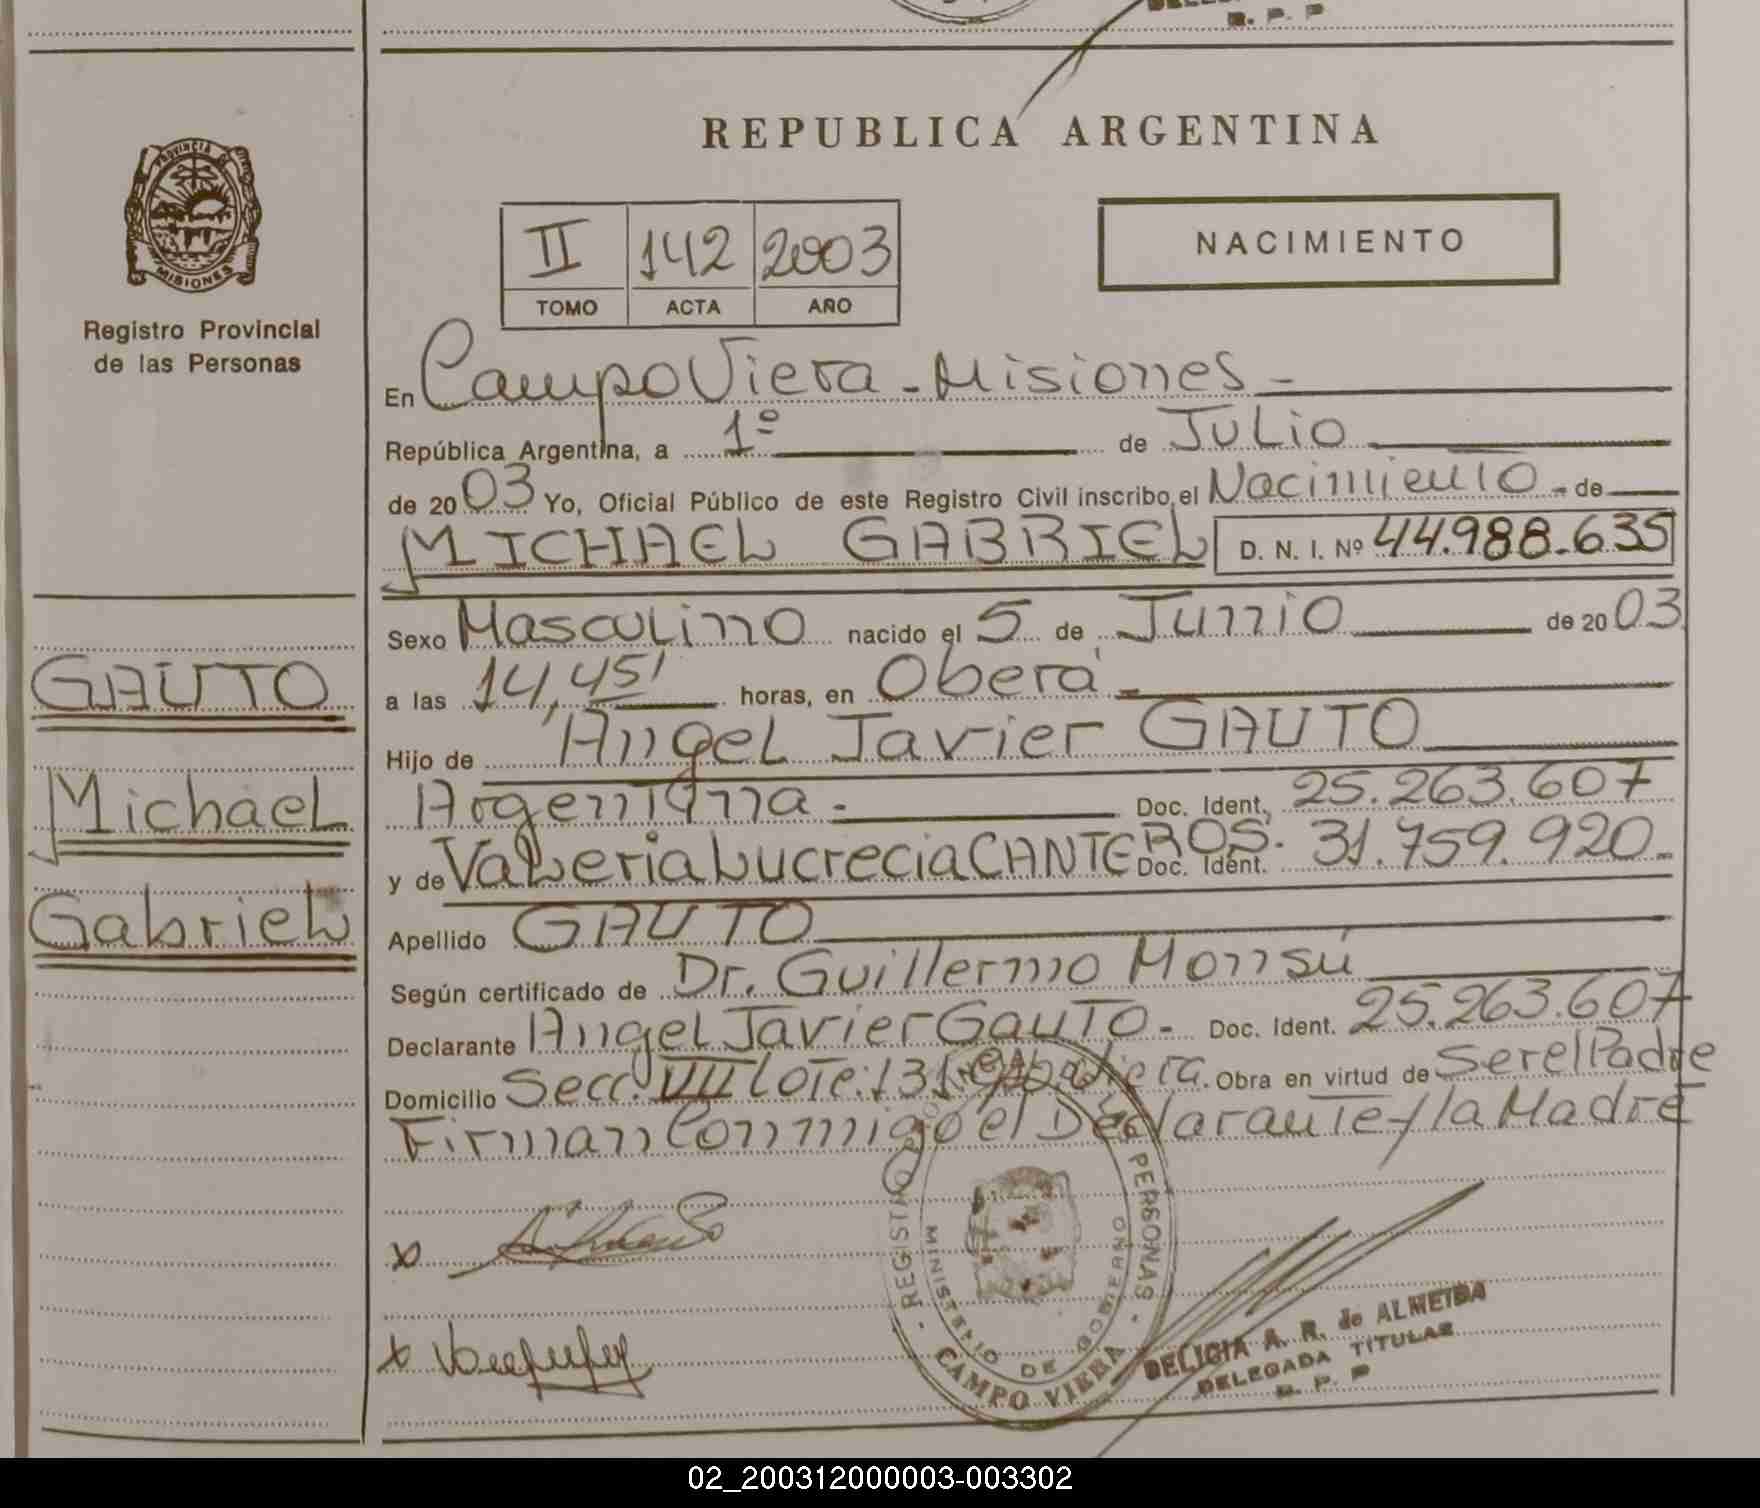 R. P. P
REPUBLICA ARGENTINA
PROVINCIA DE
MISIONES
Registro Provincial
de las Personas
II 142 2003
TOMO ACTA AÑO
NACIMIENTO
En Campo Viera - Misiones -
República Argentina, a 1º de Julio
de 2003 Yo, Oficial Público de este Registro Civil inscribo el Nacimiento - de
MICHAEL GABRIEL D. N. I. Nº 44.988.635
Sexo Masculino nacido el 5 de Junio de 2003
a las 14,45' horas, en Oberá -
Hijo de Angel Javier GAUTO
Argentina - Doc. Ident. 25.263.607
y de Valeria Lucrecia CANTEROS. Doc. Ident. 31.759.920-
Apellido GAUTO
Según certificado de Dr. Guillermo Monsú
Declarante Angel Javier Gauto - Doc. Ident. 25.263.607
Domicilio Secc. VII Lote: 131 Viera. Obra en virtud de Ser el Padre
Firman Conmigo el Declarante y la Madre
GAUTO
Michael
Gabriel
x
x
REGISTRO PERSONAS
MINISTERIO DE GOBIERNO
- CAMPO VIERA -
DELICIA A. R. de ALMEIDA
DELEGADA TITULAR
R. P. P
02_200312000003-003302